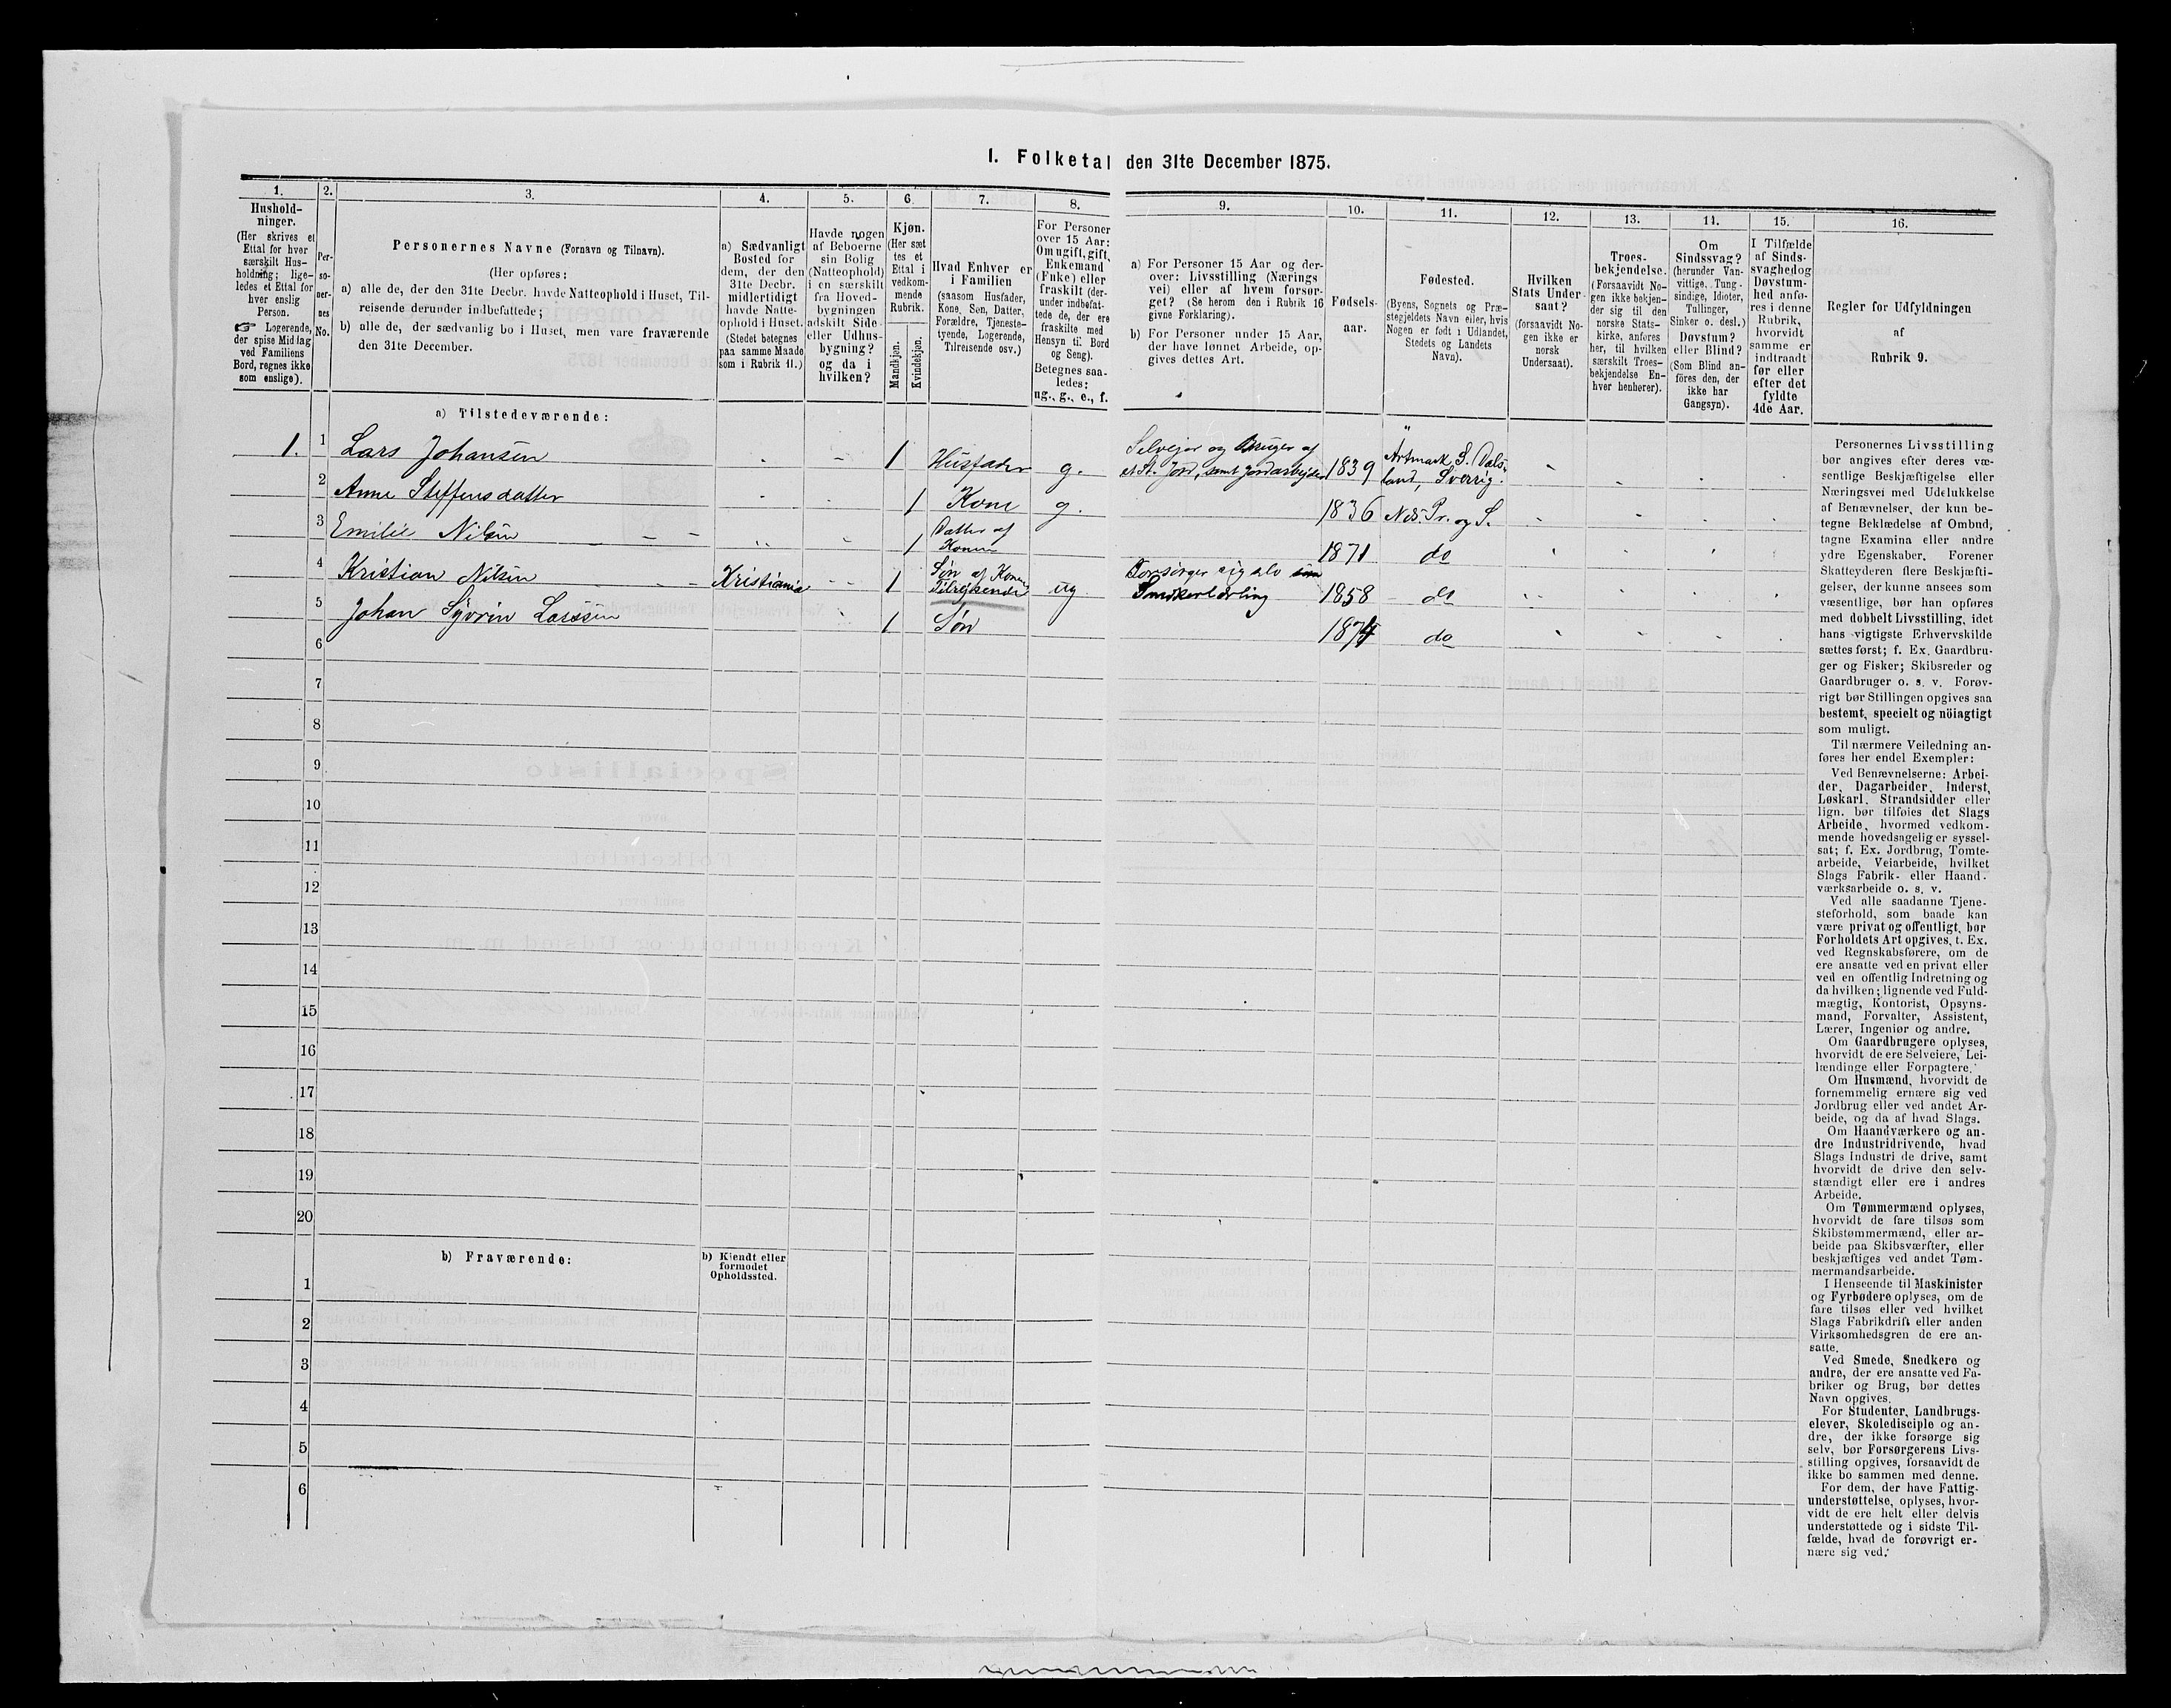 1. Folketal den 31te December 1875.
1.
Hushold-
ninger.
(Her skrives et
Ettal for hver
særskilt Hus-
holdning; lige-
ledes et Ettal for
hver enslig
Person.
☞ Logerende,
der spise Middag
ved Familiens
Bord, regnes ikke
som enslige).
2.
Per-
so-
ner-
nes
No.
3.
Personernes Navne (Fornavn og Tilnavn).
(Her opføres:
a) alle de, der den 31te Decbr. havde Natteophold i Huset, Til-
reisende derunder indbefattede;
b) alle de, der sædvanlig bo i Huset, men vare fraværende
den 31te December.
4.
a) Sædvanligt
Bosted for
dem, der den
31te Decbr.
midlertidigt
havde Natte-
ophold i Huset.
(Stedet betegnes
paa samme Maade
som i Rubrik 11.)
5.
Havde nogen
af Beboerne
sin Bolig
(Natteophold)
i en særskilt
fra Hoved-
bygningen
adskilt Side-
eller Udhus-
bygning?
og da i
hvilken?
6.
Kjøn.
(Her sæt
tes et
Ettal i
vedkom-
mende
Rubrik.
Mandkjøn.
Kvindekjøn.
7.
Hvad Enhver er
i Familien
(saasom Husfader,
Kone, Søn, Datter,
Forældre, Tjeneste-
tyende, Logerende,
Tilreisende osv.)
8.
For Personer
over 15 Aar:
Om ugift, gift,
Enkemand
(Enke) eller
fraskilt (der-
under indbefat-
tede de, der ere
fraskilte med
Hensyn til Bord
og Seng).
Betegnes saa-
ledes:
ug., g., e., f.
9.
a) For Personer 15 Aar og der-
over: Livsstilling (Nærings
vei) eller af hvem forsør-
get? (Se herom den i Rubrik 16
givne Forklaring).
b) For Personer under 15 Aar,
der have lønnet Arbeide, op-
gives dettes Art.
10.
Fødsels-
aar.
11.
Fødested.
(Byens, Sognets og Præ-
stegjeldets Navn eller, hvis
Nogen er født i Udlandet,
Stedets og Landets
Navn).
12.
Hvilken
Stats Under-
saat?
(forsaavidt No-
gen ikke er
norsk
Undersaat).
13.
Troes-
bekjendelse.
(Forsaavidt No-
gen ikke bekjen-
der sig til den
norske Stats-
kirke, anføres
her, til hvilken
særskilt Troes-
bekjendelse En-
hver henhører).
14.
Om
Sindssvag?
(herunder Van-
vittige, Tung-
sindige, Idioter,
Tullinger,
Sinker o. desl.)
Døvstum?
eller Blind?
(Som Blind an-
føres den, der
ikke har
Gangsyn).
15.
I Tilfælde
af Sinds-
svaghed og
Døvstum-
hed anfø-
res i denne
Rubrik,
hvorvidt
samme er
indtraadt
før eller
efter det
fyldte
4de Aar.
16.
Regler for Udfyldningen
af
Rubrik 9.
a) Tilstedeværende:
1. 1 Lars Johansen 1 Husfader g. Selvejer og Bruger af et St. Jord, samt Jordarbejder 1839 Artmark S. Dalsland, Sverrig.
2 Anne Steffensdatter 1 Kone g. 1836 Nes Pr. og S.
3 Emilie Nilsen 1 Datter af Konen 1871 do
4 Kristian Nilsen Kristiania 1 Søn af Konen Tilrejsende ug Forsørger sig selv som Snedkerlærling 1858 do
5 Johan Syvrin Larssen 1 Søn 1874 do
6
7
8
9
10
11
12
13
14
15
16
17
18
19
20
b) Fraværende:
b) Kjendt eller
formodet
Opholdssted.
1
2
3
4
5
6
Personernes Livsstilling
bør angives efter deres væ-
sentlige Beskjæftigelse eller
Næringsvei med Udelukkelse
af Benævnelser, der kun be-
tegne Beklædelse af Ombud,
tagne Examina eller andre
ydre Egenskaber. Forener
Skatteyderen flere Beskjæfti-
gelser, der kunne ansees som
væsentlige, bør han opføres
med dobbelt Livsstilling, idet
hans vigtigste Erhvervskilde
sættes først; f. Ex. Gaardbru-
ger og Fisker; Skibsreder og
Gaardbruger o. s. v. Forøv-
rigt bør Stillingen opgives saa
bestemt, specielt og nöiagtigt
som muligt.
Til nærmere Veiledning an-
føres her endel Exempler:
Ved Benævnelserne: Arbei-
der, Dagarbeider, Inderst,
Løskarl, Strandsidder eller
lign. bør tilføies det Slags
Arbeide, hvormed vedkom-
mende hovedsagelig er syssel-
sat; f. Ex. Jordbrug, Tomte-
arbeide, Veiarbeide, hvilket
Slags Fabrik- eller Haand-
værksarbeide o. s. v.
Ved alle saadanne Tjene-
steforhold, som baade kan
være privat og offentligt, bør
Forholdets Art opgives, t. Ex.
ved Regnskabsførere, om de
ere ansatte ved en privat eller
ved en offentlig Indretning og
da hvilken; lignende ved Fuld-
mægtig, Kontorist, Opsyns-
mand, Forvalter, Assistent,
Lærer, Ingeniør og andre.
Om Gaardbrugere oplyses,
hvorvidt de ere Selveiere, Lei-
lændinge eller Forpagtere.
Om Husmænd, hvorvidt de
fornemmelig ernære sig ved
Jordbrug eller ved andet Ar-
beide, og da af hvad Slags.
Om Haandværkere og an-
dre Industridrivende, hvad
Slags Industri de drive, samt
hvorvidt de drive den selv-
stændigt eller ere i andres
Arbeide.
Om Tømmermænd oplyses,
hvorvidt de fare tilsøs som
Skibstømmermænd, eller ar-
beide paa Skibsværfter, eller
beskjæftiges ved andet Tøm-
mermandsarbeide.
I Henseende til Maskinister
og Fyrbødere oplyses, om de
fare tilsøs eller ved hvilket
Slags Fabrikdrift eller anden
Virksomhedsgren de ere an-
satte.
Ved Smede, Snedkere og
andre, der ere ansatte ved Fa-
briker og Brug, bør dettes
Navn opgives.
For Studenter, Landbrugs-
elever, Skoledisciple og an-
dre, der ikke forsørge sig
selv, bør Forsørgerens Livs-
stilling opgives, forsaavidt de
ikke bo sammen med denne.
For dem, der have Fattig-
understøttelse, oplyses, hvor-
vidt de ere helt eller delvis
understøttede og i sidste Til-
fælde, hvad de forøvrigt er-
nære sig ved.